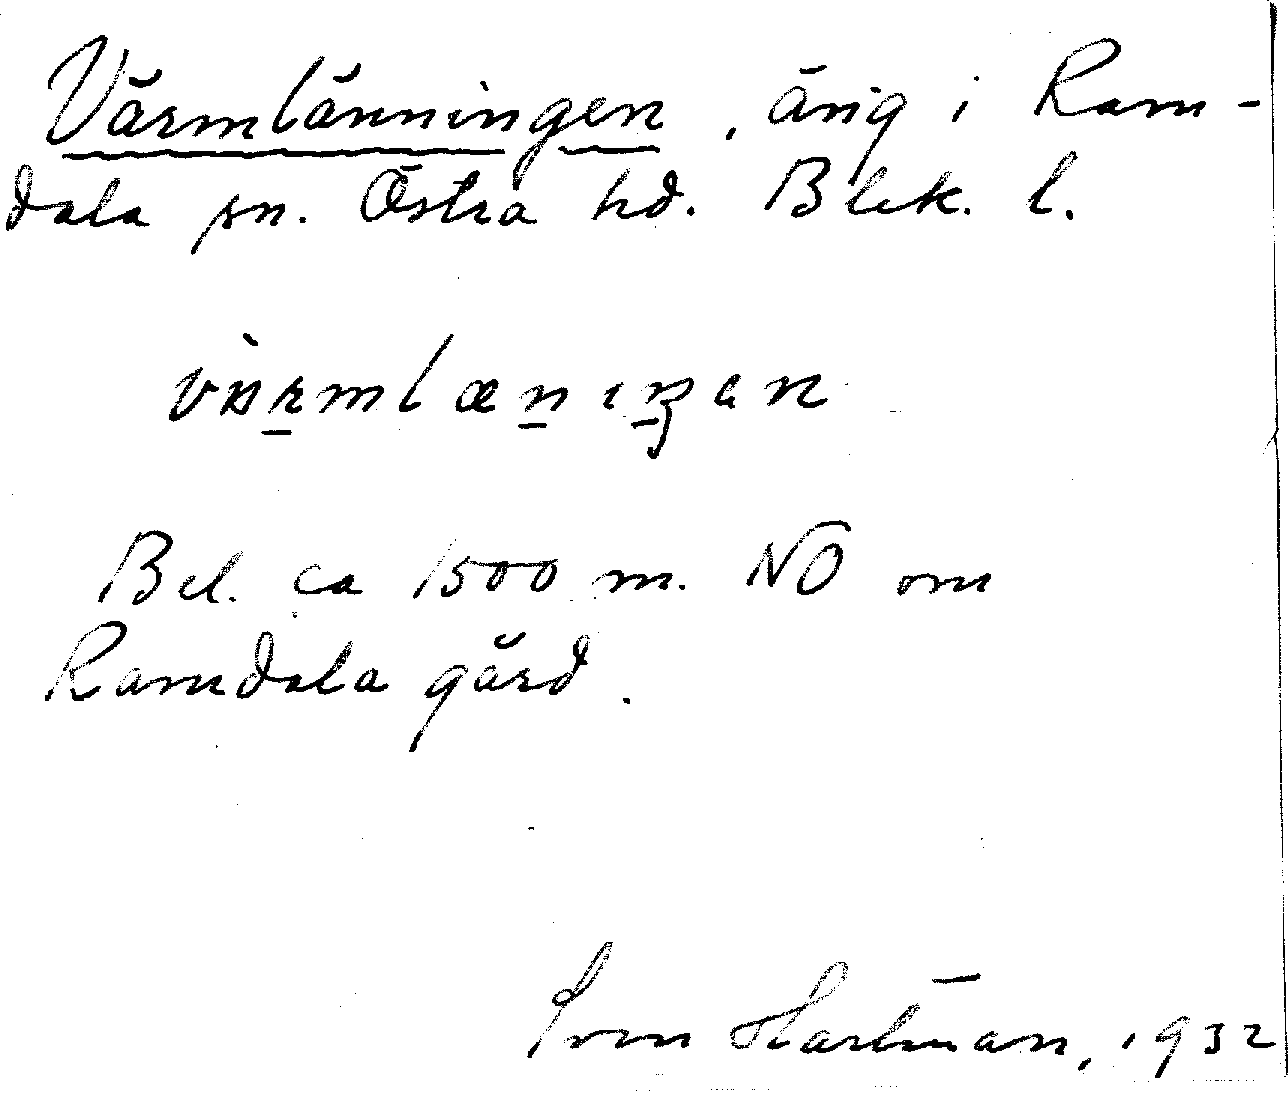 Värmlänningen, äng i Ram-
dala sn. Östra hd. Blek. l.
Bel. ca 1500 m. NO om
Ramdala gård.
Sven Hartman, 1932